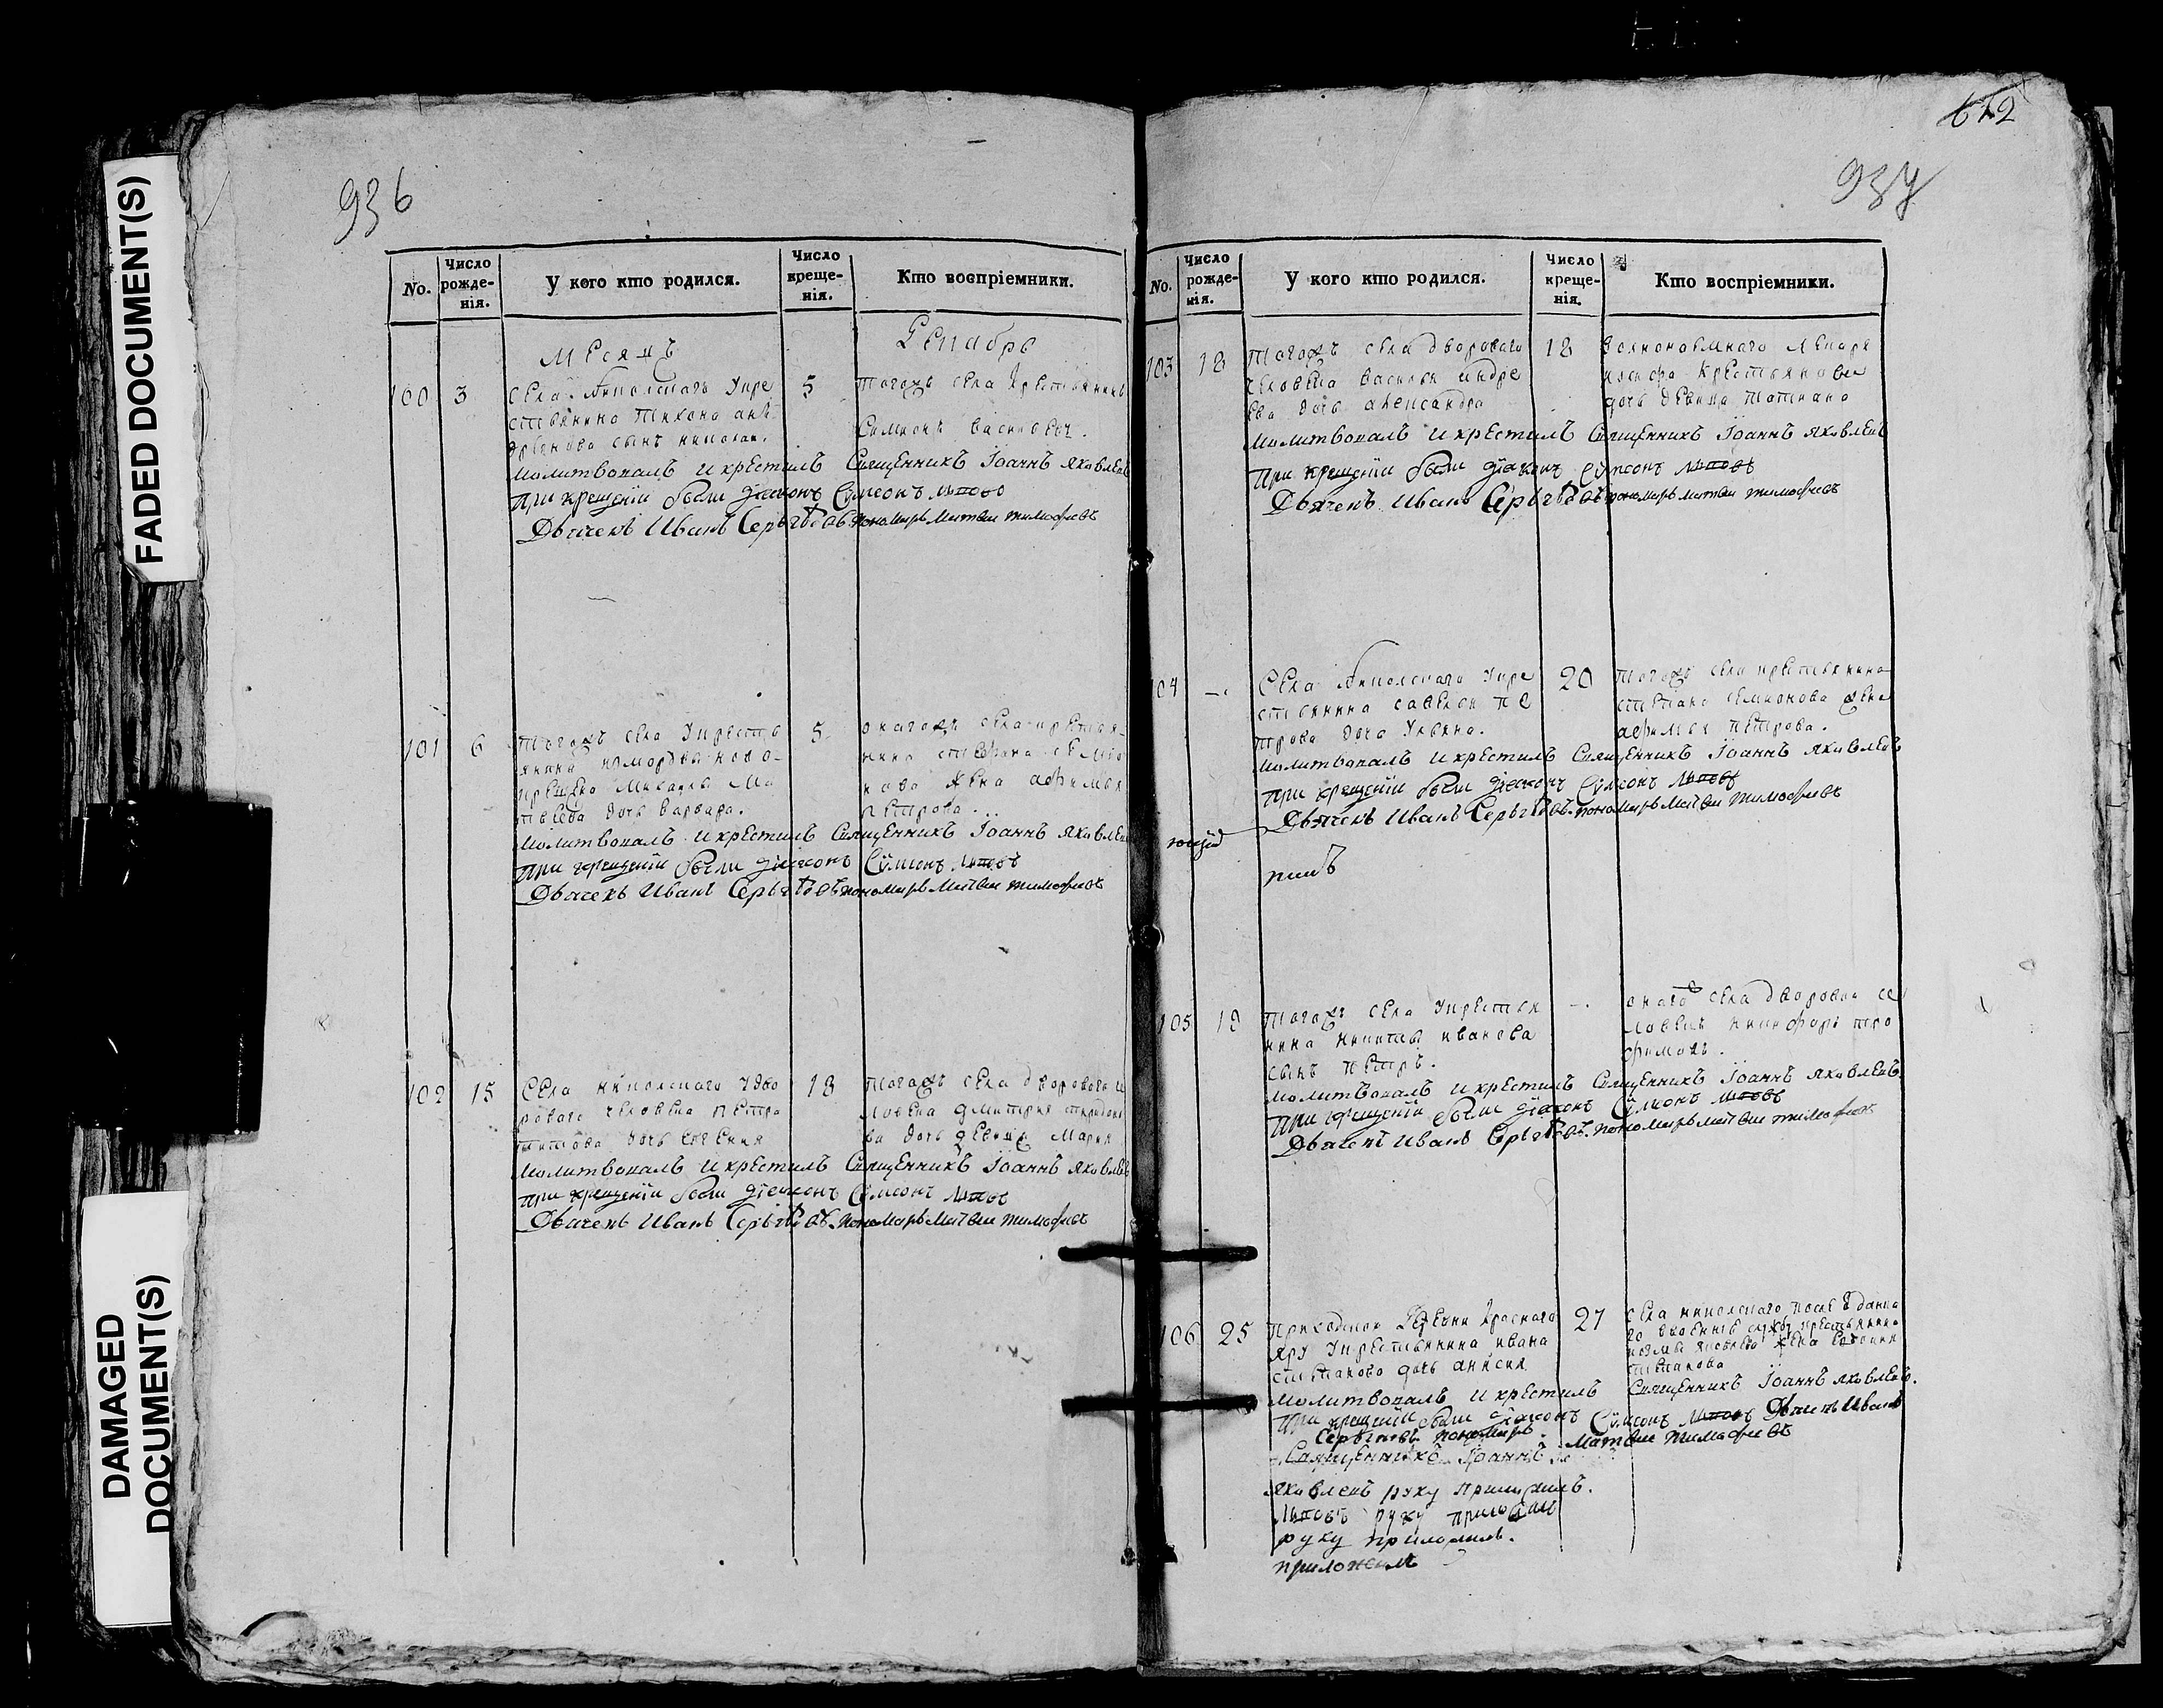 FADED DOCUMENT(S)
DAMAGED
DOCUMENT(S)
936
No.
Число
рожде-
нія.
У кого кто родился.
Число
креще-
нія.
Кто воспріемники.
Месяцъ
Декабрь
100
3
села Никольскаго укре
стьянина Тихона
сынъ николай.
5
тогожъ села крестьянинъ
Симионъ
молитвовалъ и крестилъ Священникъ Іоаннъ яковлевъ
При крещеніи были діаконъ Сѵмеонъ
Дьячекъ Иванъ Сергѣевъ пономарь Матвеи тимофиевъ
101
6
тогожъ села укресть
янина измордвы ново-
крещена Михаила Ма
твеева дочь варвара.
5
оногожъ села крестья-
нина стефана семио
нова жена афимья
петрова
молитвовалъ и крестилъ Священникъ Іоаннъ яковлевъ
при крещеніи были діаконъ Сѵмеонъ
Дьячекъ Иванъ Сергѣевъ пономарь Матвеи тимофиевъ
102
15
села никольскаго удво
роваго человека петра
титова дочь евгения
18
тогожъ села дворового че
ловека дмитрия спиридоно
ва дочь девица Мария
молитвовалъ и крестилъ Священникъ Іоаннъ яковлевъ
при крещеніи были діаконъ Сѵмеонъ
Дьячекъ Иванъ Сергѣевъ пономарь Матвеи тимофиевъ
612
937
No.
Число
рожде-
нія.
У кого кто родился.
Число
креще-
нія.
Кто воспріемники.
103
18
тогожъ села двороваго
человека василья андре
ева дочь александра
18
вольнонемнаго лекаря
иосифа крестьянова
дочь девица татиана
молитвовалъ и крестилъ Священникъ Іоаннъ яковлевъ
При крещеніи были діаконъ Сѵмеонъ
Дьячекъ Иванъ Сергѣевъ пономарь матвеи тимофиевъ
104
—
села Никольскаго укре
стьянина савелья пе
трова дочь Ульяна.
20
тогожъ села крестьянина
степана семионова жена
афимья петрова.
молитвовалъ и крестилъ Священникъ Іоаннъ яковлевъ
при крещеніи были діаконъ Сѵмеонъ
Дьячекъ Иванъ Сергѣевъ пономарь матвеи тимофиевъ
105
19
тогожъ села укрестья
нина никиты иванова
сынъ петръ.
—
оного села дворовои че
ловекъ никифоръ тро
фимовъ.
молитвовалъ и крестилъ Священникъ Іоаннъ яковлевъ
При крещеніи были діаконъ Сѵмеонъ
Дьячекъ Иванъ Сергѣевъ пономарь матвеи тимофиевъ
106
25
приходскои деревни краснаго
яру укрестьянина ивана
степанова дочь анисия
27
села никольскаго после данна
го вваенные службу крестьянина
козмы яковлева жена евгения
степанова
молитвовалъ и крестилъ Священникъ Іоаннъ яковлевъ.
При крещеніи были діаконъ Сѵмеонъ Дьячекъ Иванъ
Сергѣевъ пономарь Матвеи тимофиевъ
Священникъ Іоаннъ
яковлевъ руку приложилъ.
руку приложилъ
руку приложилъ.
приложилъ